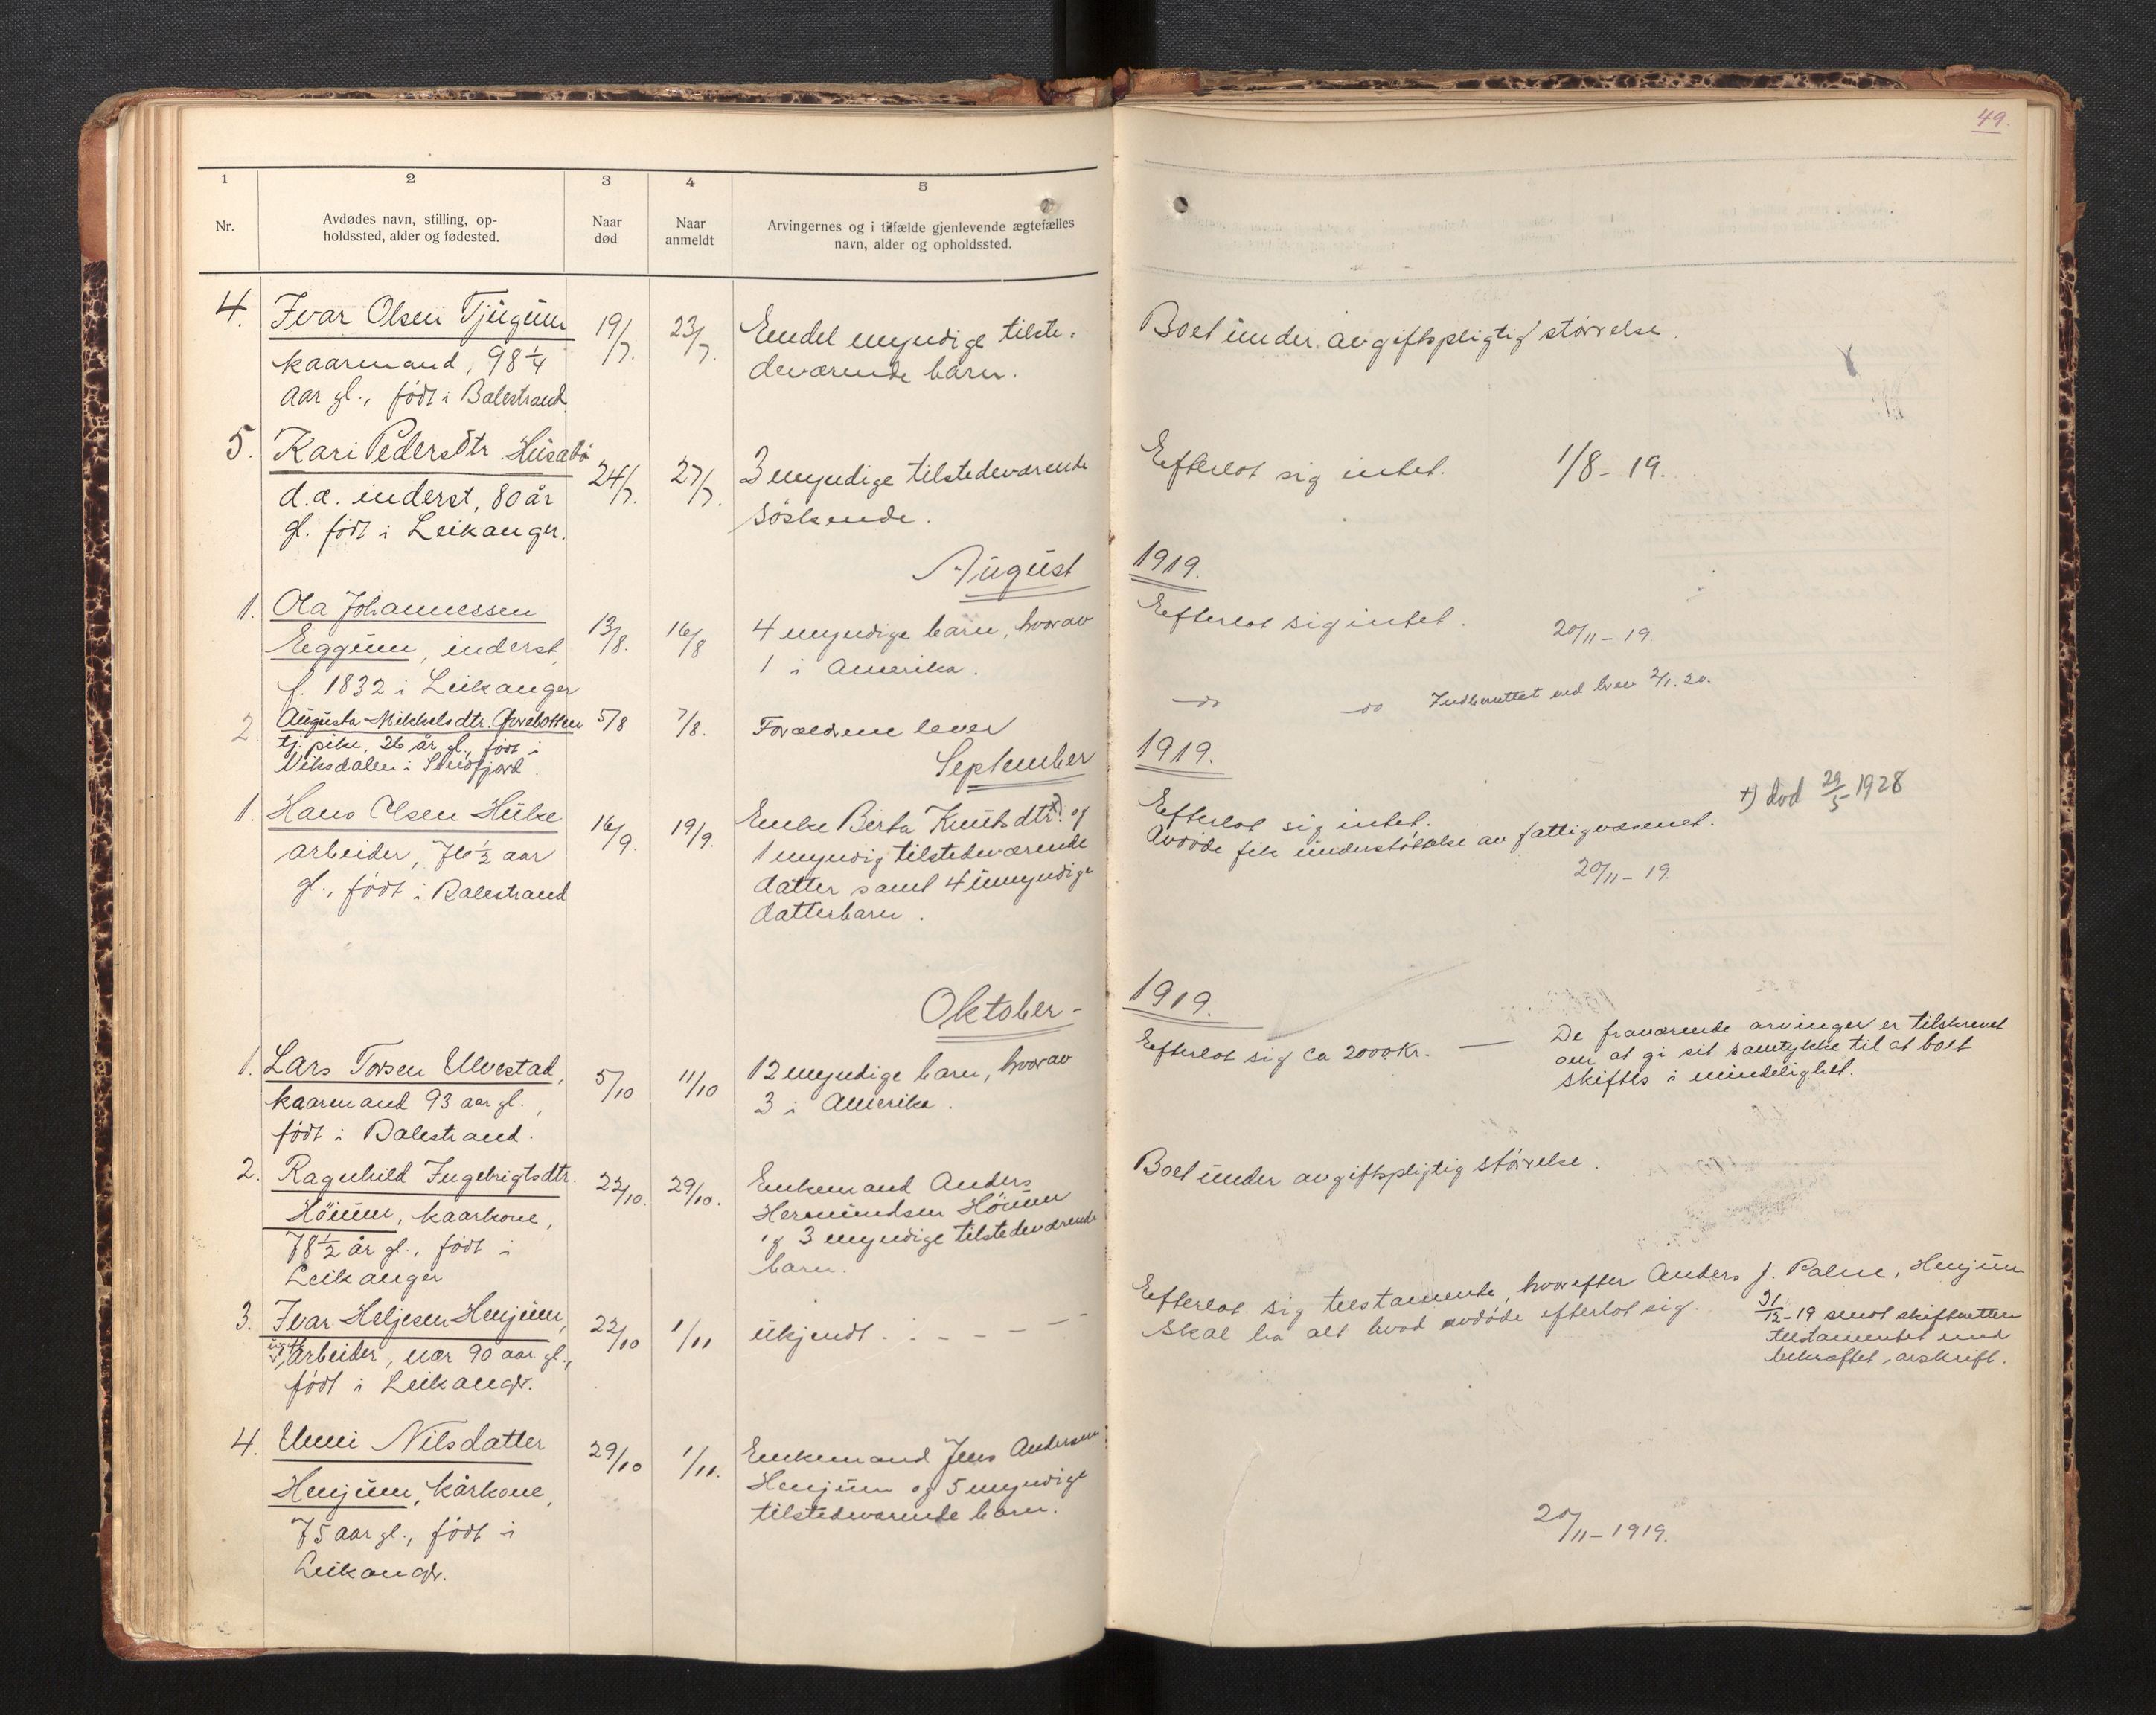 49.
1
2
3
4
5
Nr.
Avdødes navn, stilling, op-
holdssted, alder og fødested.
Naar
død
Naar
anmeldt
Arvingernes og i tilfælde gjenlevende ægtefælles
navn, alder og opholdssted.
4. Ivar Olsen Tjugum 19/7. 23/7. Endel myndige tilste- Boet under avgiftspligtig størrelse.
kaarmand, 98 1/4 deværende barn.
aar gl., født i Balestrand.
5. Kari Pedersdtr. Husabø 24/7. 27/7. 3 myndige tilstedeværende Efterlot sig intet. 1/8 - 19.
d.a. inderst, 80 år søskende.
gl. født i Leikanger.
August 1919.
1. Ola Johannessen 13/8. 16/8 4 myndige barn, hvorav Efterlot sig intet. 20/11 - 19.
Eggum, inderst, 1 i Amerika.
f. 1832 i Leikanger
2. Augusta Mikkelsdtr. 5/8 7/8. Forældrene lever —do —do Indberettet ved brev 2/1. 20.
tj. pike, 26 år gl., født i
Viksdalen i Søndfjord.
September 1919.
1. Hans Olsen Huke 16/9. 19/9. Enke Berta Knutsdtr. x) og Efterlot sig intet. +) død 29/5 1928
arbeider, 76 1/2 aar 1 myndig tilstedeværende Avdøde fik understøttelse av fattigvæsenet.
gl., født i Balestrand datter samt 4 umyndige 20/11 - 19.
datterbarn.
Oktober - 1919.
1. Lars Torsen Ulvestad, 5/10 11/10 12 myndige barn, hvorav Efterlot sig ca 2000 Kr. — De fraværende arvinger er tilskrevet
kaarmand 93 aar gl., 3 i Amerika. om at gi sit samtykke til at boet
født i Balestrand. skiftes i mindelighet.
2. Ragnhild Ingebrigtsdtr. 22/10. 29/10. Enkemand Anders Boet under avgiftspligtig størrelse.
Høium, kaarkone, Hermundsen Høium
78 1/2 år gl., født i og 3 myndige tilstedeværende
Leikanger barn.
3. Ivar Heljesen Henjum, 22/10 1/11 ukjendt. Efterlot sig testamente, hvorefter Anders J. Balne, Henjum
ugift, arbeider, nær 90 aar gl., skal ha alt hvad avdøde efterlot sig. 31/12 - 19 sendt skifteretten
født i Leikanger. testamentet med
bekræftet avskrift.
4. Unni Nilsdatter 29/10 1/11. Enkemand Jens Andersen
Henjum, kårkone, Henjum og 5 myndige
75 aar gl., født i tilstedeværende barn. 20/11 - 1919.
Leikanger.